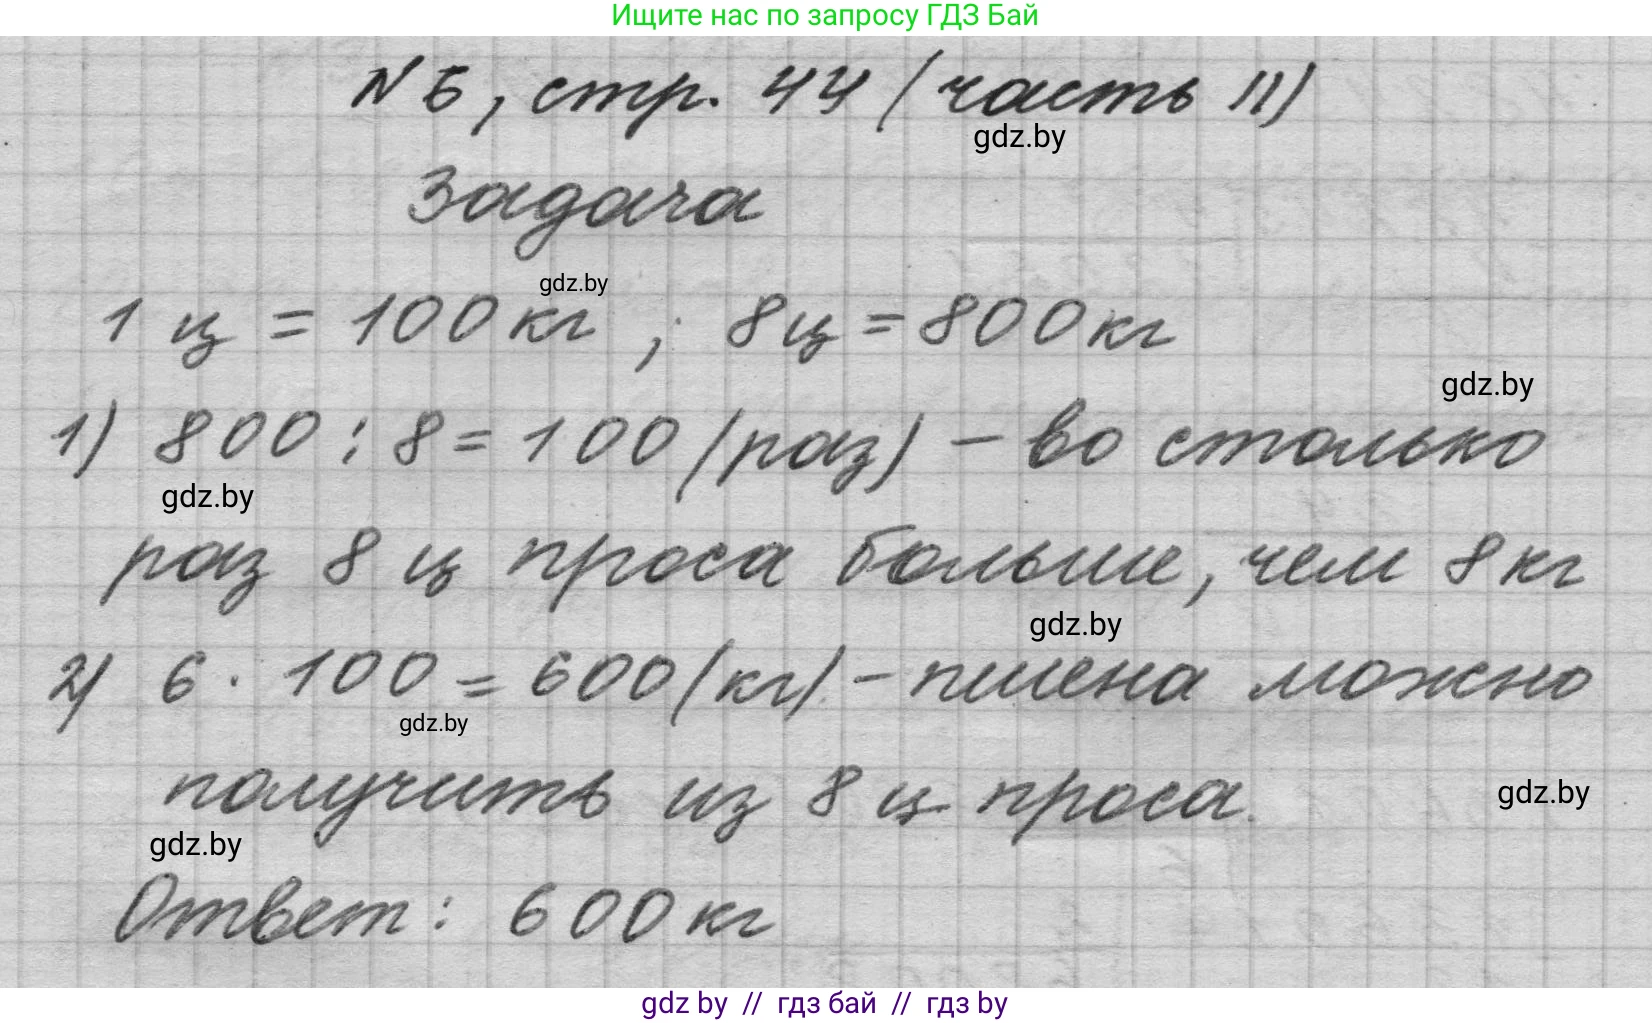 Ищите нас по запросу ГДЗ Бай
№5, стр. 44 (часть II)
gdz.by
Задача
gdz.by
1 ц = 100 кг ; 8 ц = 800 кг
gdz.by
1) 800 : 8 = 100 (раз) – во столько
gdz.by
раз 8 ц проса больше, чем 8 кг
gdz.by
2) 6 · 100 = 600 (кг) – пшена можно
gdz.by
получить из 8 ц проса.
gdz.by
gdz.by
Ответ: 600 кг
gdz by // гдз бай // гдз by